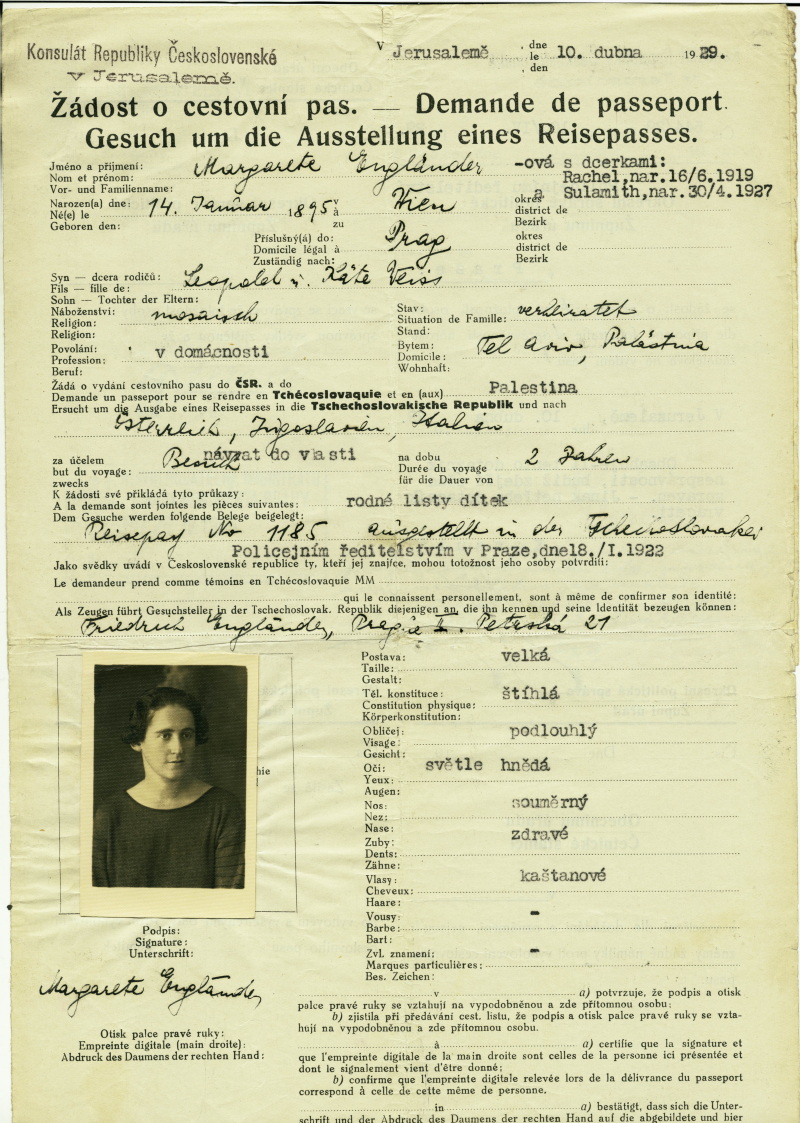 Konsulát Republiky Československé
v Jerusalemě.
V Jerusalemě, dne 10. dubna 1929.
le
den
Žádost o cestovní pas. — Demande de passeport.
Gesuch um die Ausstellung eines Reisepasses.
Jméno a příjmení: Margarete Engländer -ová s dcerkami:
Nom et prénom: Rachel,nar.16/6.1919
Vor- und Familienname: a Sulamith,nar.30/4.1927
Narozen(a) dne: 14. Januar 1895 v Wien okres
Né(e) le à district de
Geboren den: zu Bezirk
Příslušný(á) do: Prag okres
Domicile légal à district de
Zuständig nach: Bezirk
Syn — dcera rodičů: Leopold u. Käte Weiss
Fils — fille de:
Sohn — Tochter der Eltern:
Náboženství: mosaisch Stav: verheiratet
Religion: Situation de Famille:
Religion: Stand:
Povolání: v domácnosti Bytem: Tel Aviv, Palästina
Profession: Domicile:
Beruf: Wohnhaft:
Žádá o vydání cestovního pasu do ČSR. a do Palestina
Demande un passeport pour se rendre en Tchécoslovaquie et en (aux)
Ersucht um die Ausgabe eines Reisepasses in die Tschechoslovakische Republik und nach
Österreich, Jugoslavien, Italien
za účelem Besuch návrat do vlasti na dobu 2 Jahren
but du voyage: Durée du voyage
zwecks für die Dauer von
K žádosti své přikládá tyto průkazy:
A la demande sont jointes les pièces suivantes: rodné listy dítek
Dem Gesuche werden folgende Belege beigelegt:
Reisepass No 1185 ausgestellt in der Tschechoslovakei
Policejním ředitelstvím v Praze,dne18./I.1922
Jako svědky uvádí v Československé republice ty, kteří jej znajíce, mohou totožnost jeho osoby potvrditi:
Le demandeur prend comme témoins en Tchécoslovaquie MM
qui le connaissent personellement, sont à même de confirmer son identité:
Als Zeugen führt Gesuchsteller in der Tschechoslovak. Republik diejenigen an, die ihn kennen und seine Identität bezeugen können:
Friedrich Engländer, Prag II. Petrská 21
Postava: velká
Taille:
Gestalt:
Těl. konstituce: štíhlá
Constitution physique:
Körperkonstitution:
Obličej: podlouhlý
Visage:
Gesicht:
Oči: světle hnědá
Yeux:
Augen:
Nos: souměrný
Nez:
Nase:
Zuby: zdravé
Dents:
Zähne:
Vlasy: kaštanové
Cheveux:
Haare:
Vousy: -
Barbe:
Bart:
Zvl. znamení: -
Marques particulières:
Bes. Zeichen:
hie
Podpis:
Signature:
Unterschrift:
Margarete Engländer
Otisk palce pravé ruky:
Empreinte digitale (main droite):
Abdruck des Daumens der rechten Hand:
v a) potvrzuje, že podpis a otisk
palce pravé ruky se vztahují na vypodobněnou a zde přítomnou osobu;
b) zjistila při předávání cest. listu, že podpis a otisk palce pravé ruky se vzta-
hují na vypodobněnou a zde přítomnou osobu.
à a) certifie que la signature et
que l'empreinte digitale de la main droite sont celles de la personne ici présentée et
dont le signalement vient d'être donné;
b) confirme que l'empreinte digitale relevée lors de la délivrance du passeport
correspond à celle de cette même de personne.
in a) bestätigt, dass sich die Unter-
schrift und der Abdruck des Daumens der rechten Hand auf die abgebildete und hier